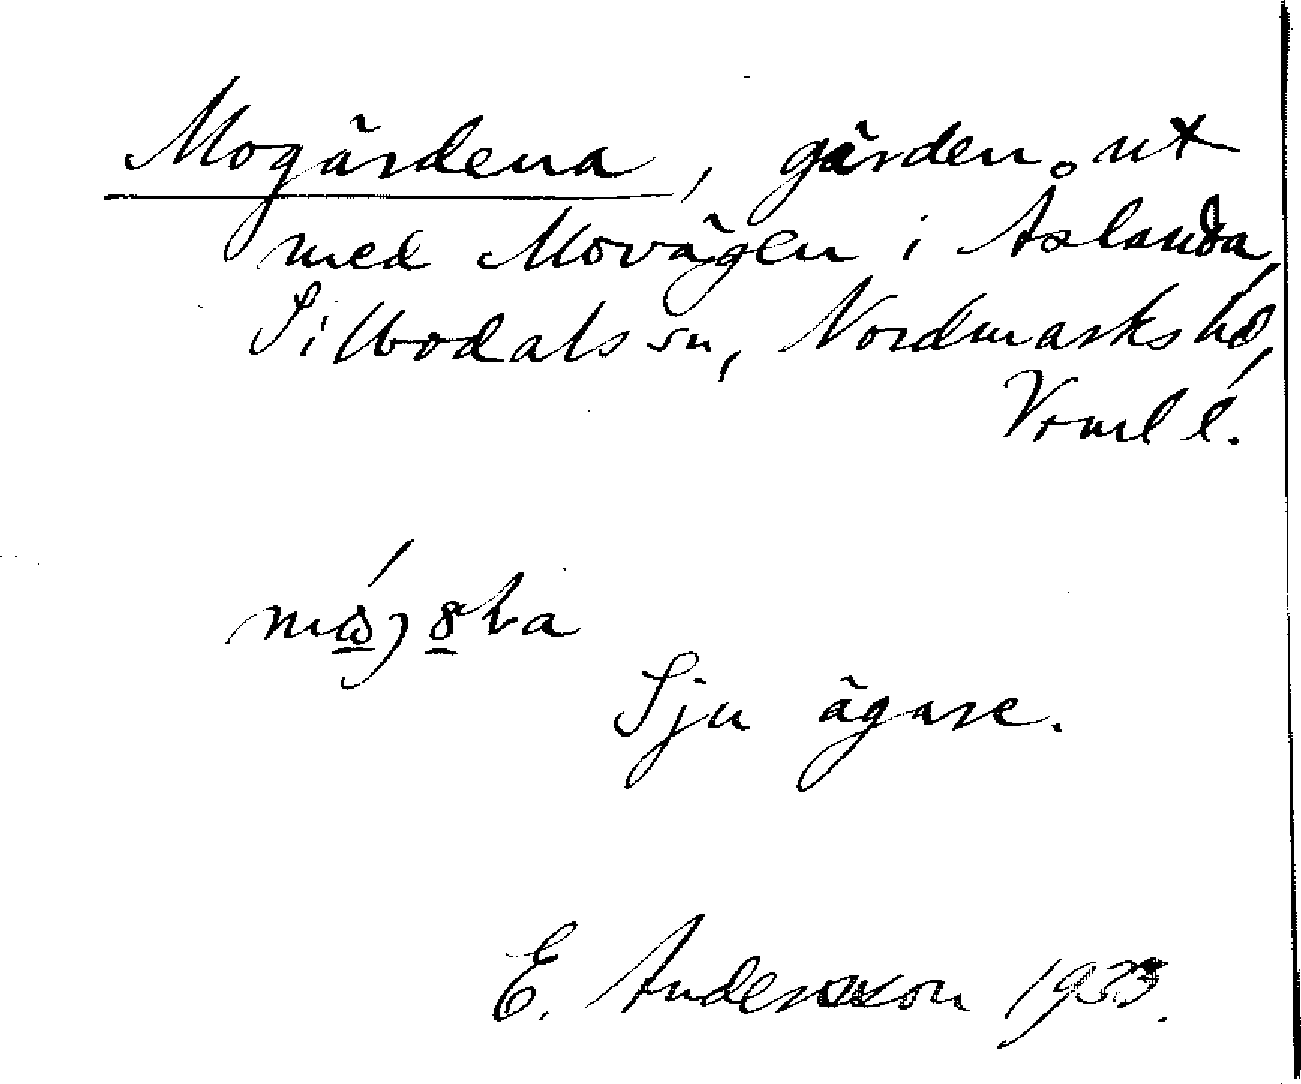 Mogärdena, gärden ut
med Movägen i Åslanda,
Silbodals sn, Nordmarks hd,
Vrml l.
Sju ägare.
E. Andersson 1923.